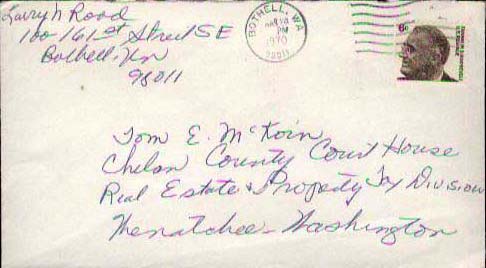 Larry N Rood
100-161st Street SE
Bothell, Wn
98011
BOTHELL, WA
PM
1970
98011
6c
Tom E. McKoin
Chelan County Court House
Real Estate & Property Tax Division
Wenatchee - Washington